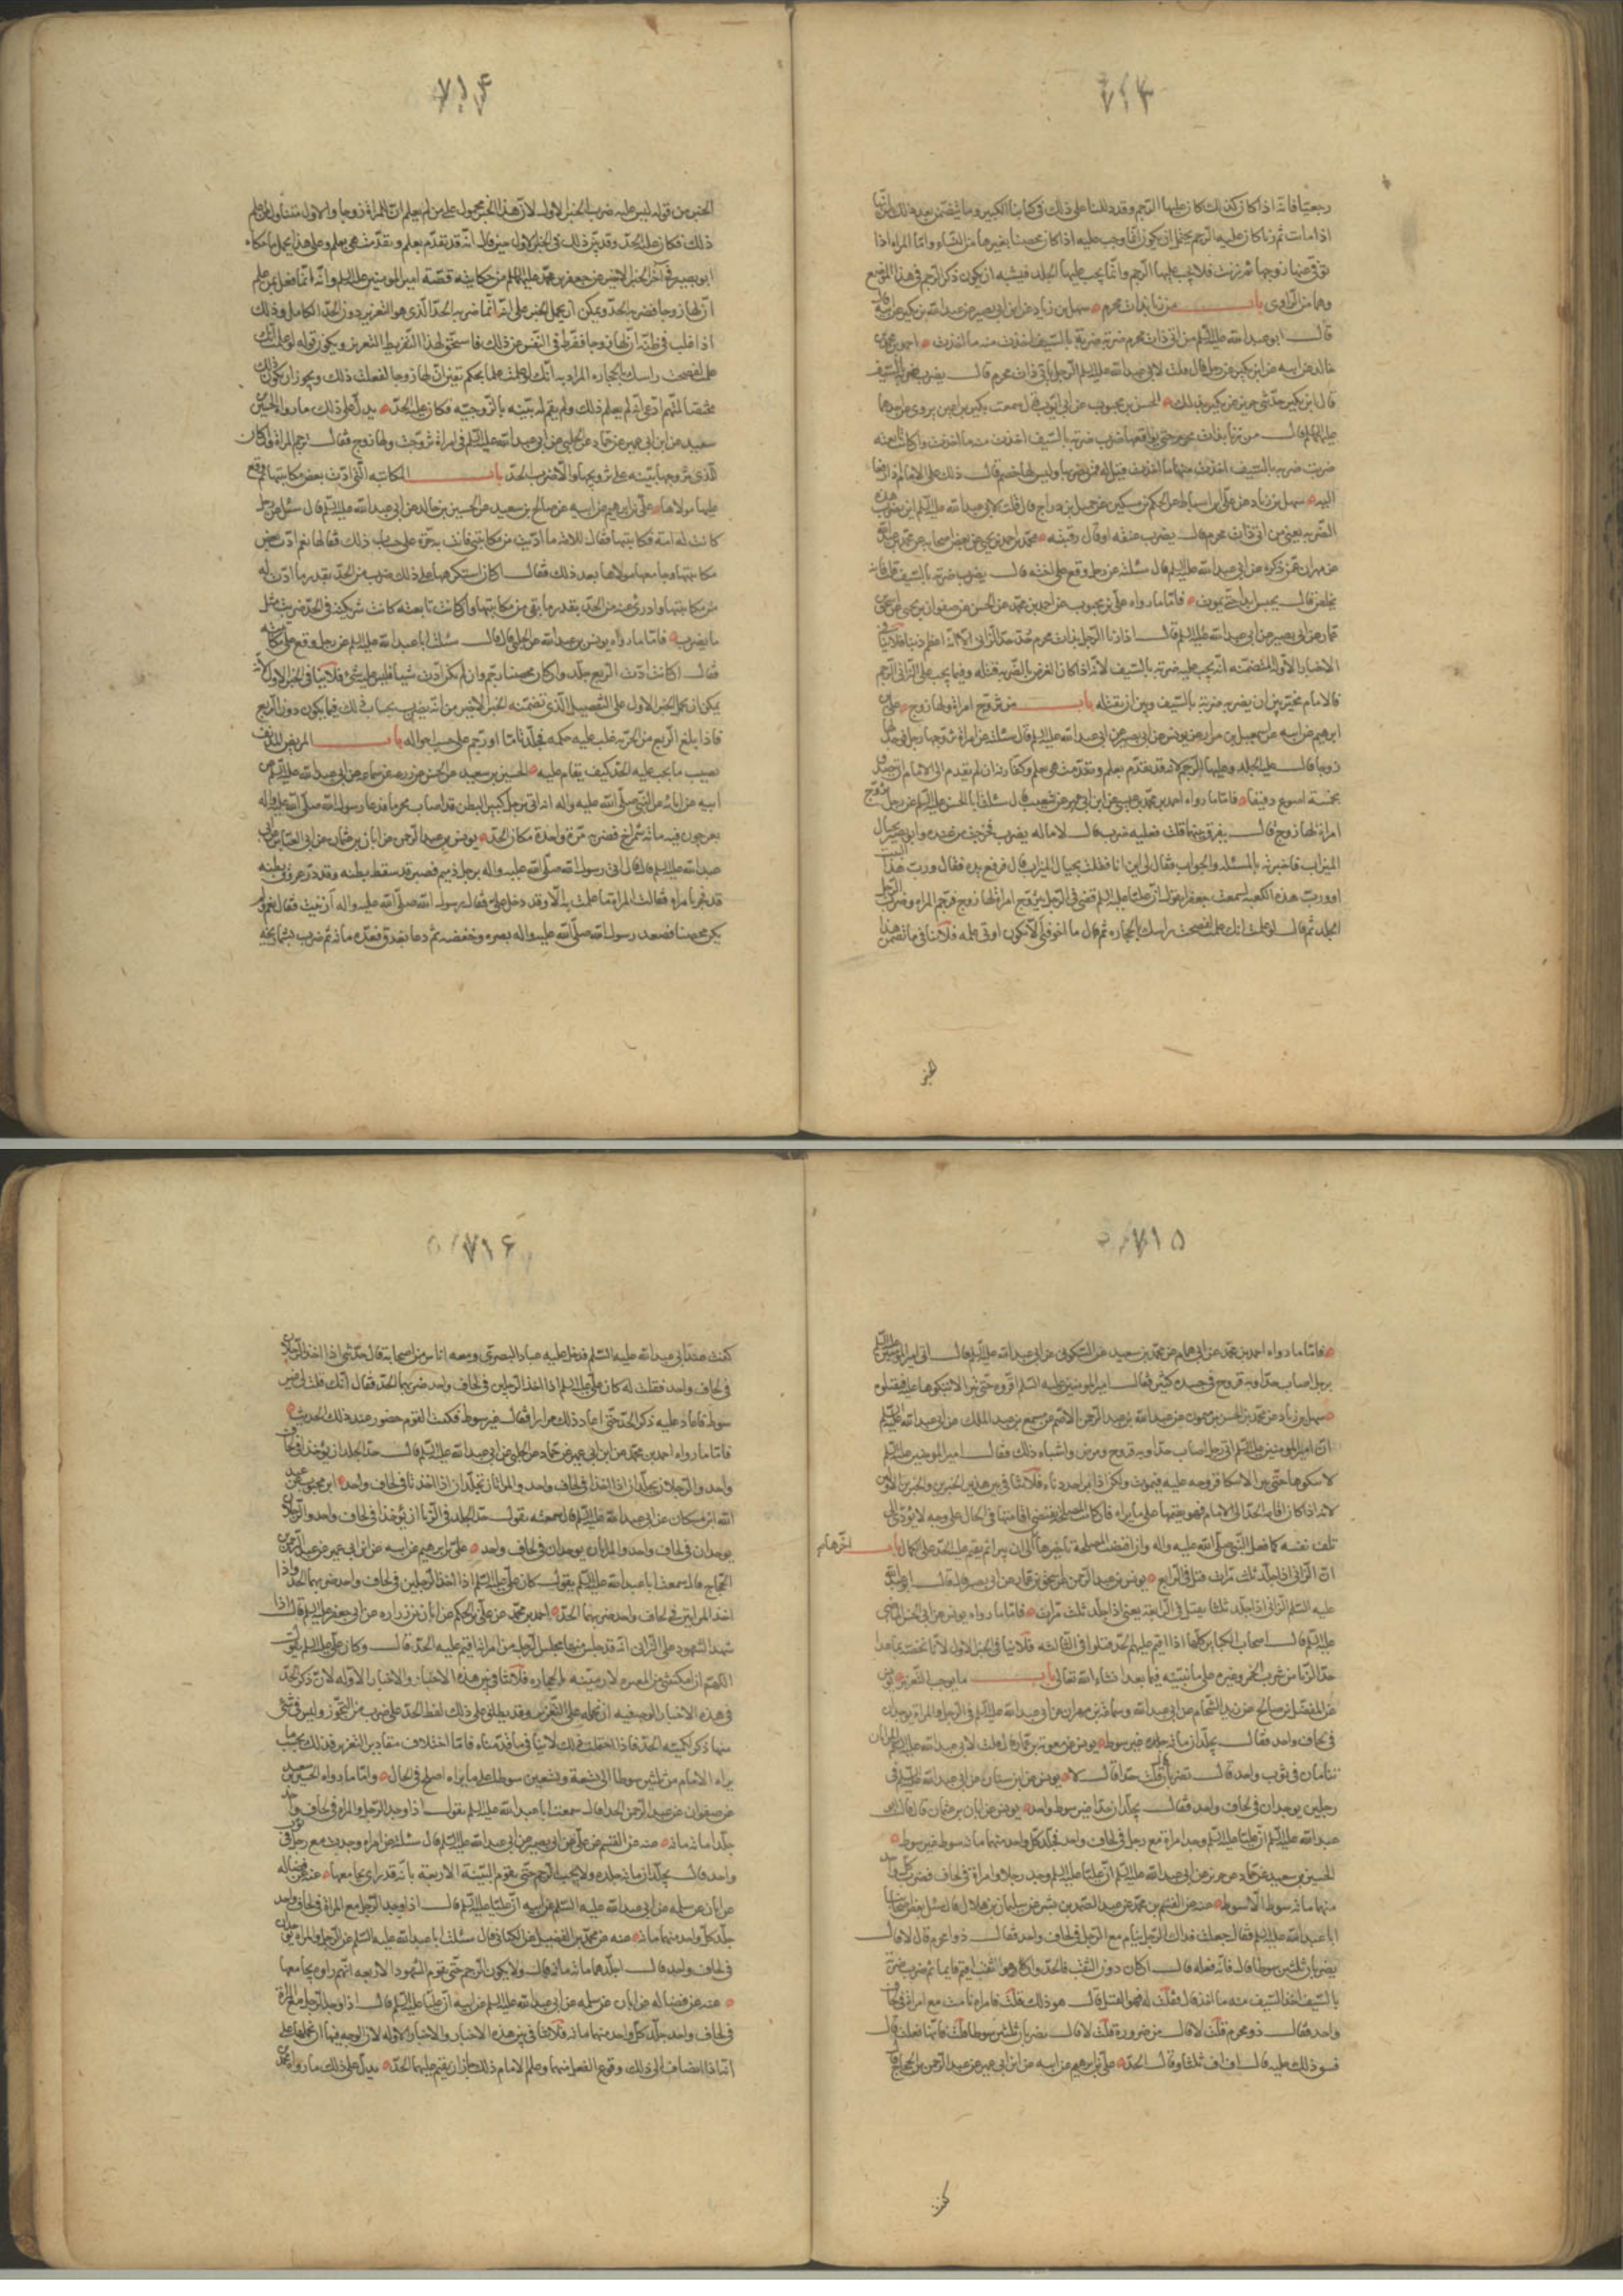 ٧١٣
رجعيا فانه اذا كان كذلك كان عليها الرجم وقد دللنا على ذلك في كتابنا الكبير وما يتضمن بعد ذلك من انها
اذا مات ثم زنا كان عليه الرجم يحتمل ان يكون انما وجب عليه اذا كان محصنا بغيرها من النساء واما المراة اذا
توفي عنها زوجها ثم زنت فلا يجب عليها الرجم وانما يجب عليها الجلد فيشبه ان يكون ذكر الرجم في هذا الموضع
وهما من الراوي باب من زنا بذات محرم سهل بن زياد عن ابن ابي نصير عن عبد الله بن بكير عن ابيه
قال ابو عبد الله عليه السلم من اتى ذات محرم ضرب ضربة بالسيف اخذت منه ما اخذت احمد بن محمد بن
خالد عن ابيه عن ابن بكير عن رجل قال قلت لابي عبد الله عليه السلم الرجل ياتي ذات محرم قال يضرب ضربة بالسيف
قال ابن بكير حدثني حريز عن بكير بذلك الحسن بن محبوب عن ابي ايوب قال سمعت بكير بن اعين يروي عن احدهما
عليهما السلم قال من زنا بذات محرم حتى يواقعها ضرب ضربة بالسيف اخذت منه ما اخذت وان كانت تابعته
ضربت ضربة بالسيف اخذت منها ما اخذت قيل له فمن يضربهما وليس لهما خصم قال ذلك على الامام اذا رفعا
اليه سهل بن زياد عن علي بن اسباط عن الحكم بن مسكين عن جميل بن دراج قال قلت لابي عبد الله عليه السلم اين يضرب هذه
الضربة يعني من اتى ذات محرم قال يضرب عنقه او قال رقبته محمد بن احمد بن يحيى عن بعض اصحابه عن محمد بن عبد الله
بن مهران عمن ذكره عن ابي عبد الله عليه السلم قال سئلته عن رجل وقع على اخته قال يضرب ضربة بالسيف قلت فانه
يخلص قال يحبس ابدا حتى يموت فاما ما رواه علي بن محبوب عن احمد بن محمد عن الحسن عن صفوان بن يحيى عن اسحق بن
عمار عن ابي بصير عن ابي عبد الله عليه السلم قال اذا زنا الرجل بذات محرم حد حد الزاني الا انه اعظم ذنبا فلا ينافي
الاخبار الاولة المتضمنة انه يجب عليه ضربة بالسيف لانه اذا كان الغرض بالضربة قتله وفيما يجب على الزاني الرجم
فالامام مخير بين ان يضربه ضربة بالسيف وبين ان يقتله باب من تزوج امراة ولها زوج علي بن
ابرهيم عن ابيه عن اسمعيل بن مرار عن يونس عن ابي بصير عن ابي عبد الله عليه السلم قال سئلته عن امراة تزوجها رجل فوجد لها
زوجا قال عليه الجلد وعليها الرجم لانه قد تقدم بعلم وتقدمت هي بعلم وكفارته ان لم يقدم الى الامام ان يتصدق
بخمسة اصوع دقيقا فاما ما رواه احمد بن محمد بن عيسى عن ابن ابي عمير عن شعيب قال سئلت ابا الحسن عليه السلم عن رجل تزوج
امراة لها زوج قال يفرق بينهما قلت فعليه ضرب قال لا ما له يضرب فخرجت من عنده وابو بصير بحيال
الميزاب فاخبرته بالمسئلة والجواب فقال لي اين انا فقلت بحيال الميزاب قال فرفع يده فقال ورب هذا البيت
او ورب هذه الكعبة لسمعت جعفرا يقول ان عليا عليه السلم قضى في الرجل تزوج امراة لها زوج فرجم المراة وضرب الرجل
الحد ثم قال لو علمت انك علمت لفضخت راسك بالحجارة ثم قال ما اخوفني الا يكون اوتي علمه فلا ينافي ما تضمن هذا
٧١۴
الخبر من قوله ليس عليه ضرب الخبر الاول لان هذا الخبر محمول على من لم يعلم ان للمراة زوجا والاول متناول لمن علم
ذلك فكان عليه الحد وقد بين ذلك في الخبر الاول حين قال انه قد تقدم بعلم وتقدمت هي بعلم وعلى هذا يحمل ما حكاه
ابو بصير في آخر الخبر الاخير عن جعفر بن محمد عليهما السلم من حكايته قصة امير المومنين عليه السلم وانه انما فعل بمن علم
ان لها زوجا فضربه الحد ويمكن ان يحمل الخبر على انه انما ضربه الحد الذي هو التعزير دون الحد الكامل وذلك
اذا غلب في ظنه ان لها زوجا ففرط في التفتيش عن ذلك فاستحق لهذا التفريط التعزير ويكون قوله لو علمت انك
علمت لفضحت راسك بالحجارة المراد به انك لو علمت علما بحكم تيقن ان لها زوجا لفعلت ذلك ويجوز ان يكون ذلك
مختصا لمتهم ادعى انه لم يعلم ذلك ولم يقم له بينة بالزوجية فكان عليه الحد يدل على ذلك ما رواه الحسين بن
سعيد عن ابن ابي عمير عن حماد عن الحلبي عن ابي عبد الله عليه السلم في امراة تزوجت ولها زوج فقال ترجم المراة وان كان
للذي تزوجها بينة على تزويجها والا ضرب الحد باب المكاتبة التي ادت بعض مكاتبتها ثم وقع
عليها مولاها علي بن ابرهيم عن ابيه عن صالح بن سعيد عن الحسين بن خالد عن ابي عبد الله عليه السلم قال سئل عن رجل
كانت له امة فكاتبها فقال للامة ما اديت من مكاتبتي فانت به حرة على حساب ذلك فقال لها نعم ادت بعض
مكاتبتها وجامعها مولاها بعد ذلك فقال ان كان استكرهها على ذلك ضرب من الحد بقدر ما ادت له
من مكاتبتها وادرئ عنه من الحد بقدر ما بقي من مكاتبتها وان كانت تابعته كانت شريكته في الحد ضربت مثل
ما يضرب فاما ما رواه يونس بن عبد الله عن الحلبي قال سئلت ابا عبد الله عليه السلم عن رجل وقع على مكاتبته
فقال ان كانت ادت الربع جلد وان كان محصنا رجم وان لم تكن ادت شيئا فليس عليه شئ فلا ينافي الخبر الاول لانه
يمكن ان يحمل الخبر الاول على التفصيل الذي تضمنه الخبر الاخير من انه يضرب بحساب ذلك فيما يكون دون الربع
فاذا بلغ الربع من الحرية غلب عليه حكمه فجلد تاما او رجم على حسب احواله باب المريض المدنف
يصيب ما يجب عليه الحد كيف يقام عليه الحسين بن سعيد عن الحسن عن زرعة عن سماعة عن ابي عبد الله عليه السلم عن
ابيه عن ابائه عن النبي صلى الله عليه واله انه اتي برجل كبير البطن قد اصاب محرما فدعا رسول الله صلى الله عليه واله
بعرجون فيه مائة شمراخ فضربه مرة واحدة مكان الحد يونس بن عبد الرحمن عن ابان بن عثمان عن ابي العباس عن ابي
عبد الله عليه السلم قال اتي رسول الله صلى الله عليه واله برجل دميم قصير قد سقط بطنه وقد در عروق بطنه
قد فجر بامراة فقالت المراة ما علمت به الا وقد دخل علي فقال رسول الله صلى الله عليه واله ازنيت فقال نعم ولم
يكن محصنا فصعد رسول الله صلى الله عليه واله بصره وخفضه ثم دعا بعذق فعده مائة ثم ضربه بشماريخه
٧١۵
فاما ما رواه احمد بن محمد عن ابي همام عن محمد بن سعيد عن السكوني عن ابي عبد الله عليه السلم قال اتى امير المومنين عليه السلم
برجل اصاب حدا وبه قروح في جسده كثير فقال امير المومنين عليه السلم اقروه حتى تبرا لا تنكوها عليه فتقتلوه
سهل بن زياد عن محمد بن الحسن بن شمون عن عبد الله بن عبد الرحمن الاصم عن مسمع بن عبد الملك عن ابي عبد الله عليه السلم
ان امير المومنين عليه السلم اتي برجل اصاب حدا وبه قروح ومرض واشباه ذلك فقال امير المومنين عليه السلم
لانه اذا كان اقامة الحد الى الامام فهو يقيمها على ما يراه فان كانت المصلحة يقتضي اقامتها في الحال على وجه لا يؤدي الى
تلف نفسه كما فعل النبي صلى الله عليه واله وان اقتضت المصلحة تاخيرها الى ان يبرا ثم يقيم عليه الحد على الكمال باب اخر هام
ان الزاني اذا جلد ثلث مرات قتل في الرابع يونس بن عبد الرحمن عن اسحق بن عمار عن ابي بصير قال قال ابو عبد الله
عليه السلم الزاني اذا جلد ثلثا يقتل في الرابعة يعني اذا جلد ثلث مرات فاما ما رواه يونس عن ابي الحسن الماضي
عليه السلم قال اصحاب الكبائر كلها اذا اقيم عليهم الحد قتلوا في الثالثة فلا ينافي الخبر الاول لانا نخصه بما عدا
حد الزنا من شرب الخمر وغيره على ما نبينه فيما بعد ان شاء الله تعالى باب ما يوجب التعزير يونس
عن المفضل بن صالح عن زيد الشحام عن ابي عبد الله وسماعة بن مهران عن ابي عبد الله عليه السلم في الرجل والمراة يوجدان
في لحاف واحد فقال يجلدان مائة جلدة غير سوط يونس عن معوية بن عمار قال قلت لابي عبد الله عليه السلم المراتان
تنامان في ثوب واحد قال تضربان قلت حدا قال لا يونس عن ابن سنان عن ابي عبد الله عليه السلم في
رجلين يوجدان في لحاف واحد فقال يجلدان حدا غير سوط واحد يونس عن ابان بن عثمان قال قال ابو
عبد الله عليه السلم ان عليا عليه السلم وجد امراة مع رجل في لحاف واحد فجلد كل واحد منهما مائة سوط غير سوط
الحسين بن سعيد عن حماد عن حريز عن ابي عبد الله عليه السلم ان عليا عليه السلم وجد رجلا وامراة في لحاف فضرب كل واحد
منهما مائة سوط الا سوط عنه عن القسم بن محمد عن عبد الصمد بن بشير عن سليمان بن هلال قال سئل بعض اصحابنا
ابا عبد الله عليه السلم فقال جعلت فداك الرجل ينام مع الرجل في لحاف واحد فقال ذوا محرم قال لا قال
يضربان ثلثين سوطا قال فانه فعله قال ان كان دون الثقب فالحد وان كان هو الثقب اقيم قائما ثم ضرب ضربة
بالسيف اخذ السيف منه ما اخذ قال فقلت له فهو القتل قال هو ذلك قلت فامراة نامت مع امراة في لحاف
واحد فقال ذو محرم قلت لا قال من ضرورة قلت لا قال تضربان ثلثين سوطا قلت فانها فعلت قال
فشق ذلك عليه قال اف اف ثلثا وقال الحد علي بن ابرهيم عن ابيه عن ابن ابي عمير عن عبد الرحمن بن الحجاج قال
٧١۶
كنت عند ابي عبد الله عليه السلم فدخل عليه عباد البصري ومعه اناس من اصحابه فقال حدثني اذا اخذ الرجلان
في لحاف واحد فقلت له كان علي عليه السلم اذا اخذ الرجلين في لحاف واحد ضربهما الحد فقال انك قلت لي غير
سوط فاعاد عليه ذكر الحد حتى اعاد ذلك مرارا فقال غير سوط فكتب القوم حضور عند ذلك الحديث
فاما ما رواه احمد بن محمد عن ابن ابي عمير عن حماد عن الحلبي عن ابي عبد الله عليه السلم قال حد الجلد ان يوخذا في لحاف
واحد والرجلان يجلدان اذا اخذا في لحاف واحد والمراتان تجلدان اذا اخذتا في لحاف واحد ابن محبوب عن عبد
الله ابن مسكان عن ابي عبد الله عليه السلم قال سمعته يقول حد الجلد في الزنا ان يوخذا في لحاف واحد والرجلان
يوجدان في لحاف واحد والمراتان يوجدان في لحاف واحد علي بن ابرهيم عن ابيه عن ابن ابي عمير عن عبد الرحمن بن
الحجاج قال سمعت ابا عبد الله عليه السلم يقول كان علي عليه السلم اذا اخذ الرجلين في لحاف واحد ضربهما الحد واذا
اخذ المراتين في لحاف واحد ضربهما الحد احمد بن محمد عن علي بن الحكم عن ابان عن زرارة عن ابي جعفر عليه السلم قال اذا
شهد الشهود على الزاني انه قد جلس منها مجلس الرجل من امراته اقيم عليه الحد قال وكان علي عليه السلم يقول
اللهم ان امكنتني من المغيرة لارمينه بالحجارة فلا تنافي بين هذه الاخبار والاخبار الاولة لان ذكر الحد
في هذه الاخبار الوجه فيه ان نحمله على التعزير وقد يطلق على ذلك لفظ الحد على ضرب من التجوز وليس في شئ
منها ذكر لكمية الحد فاذا احتملت ذلك لا ينافي ما قدمناه فاما اختلاف مقادير التعزير فذلك بحسب ما
يراه الامام من ثلثين سوطا الى تسعة وتسعين سوطا على ما يراه اصلح في الحال واما ما رواه الحسين بن سعيد
عن صفوان عن عبد الرحمن الحذا قال سمعت ابا عبد الله عليه السلم يقول اذا وجد الرجل والمراة في لحاف واحد
جلدا مائة مائة عنه عن القسم عن علي عن ابي بصير عن ابي عبد الله عليه السلم قال سئلته عن امراة وجدت مع رجل في ثوب
واحد قال يجلدان مائة جلدة ولا يجب الرجم حتى يقوم البينة الاربعة بانه قد راى يجامعها عنه عن فضالة
عن ابان عن سلمة عن ابي عبد الله عليه السلم عن ابيه ان عليا عليه السلم قال اذا وجد الرجل مع المراة في لحاف واحد
جلد كل واحد منهما مائة عنه عن محمد بن الفضيل عن الكناني قال سئلت ابا عبد الله عليه السلم عن الرجل والمراة يوجدان
في لحاف واحد قال اجلدهما مائة مائة قال ولا يكون الرجم حتى تقوم الشهود الاربعة انهم راوه يجامعها
عنه عن فضالة عن ابان عن سلمة عن ابي عبد الله عليه السلم عن ابيه ان عليا عليه السلم قال اذا وجد الرجل مع المراة
في لحاف واحد جلد كل واحد منهما مائة فلا تنافي بين هذه الاخبار والاخبار الاولة لان الوجه فيها ان نحملها على
انه اذا انضاف الى ذلك وقوع الفعل منهما وعلم الامام ذلك جاز ان يقيم عليهما الحد يدل على ذلك ما رواه محمد بن